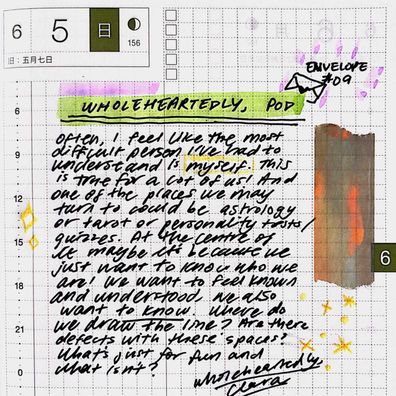 6 5 日
156
旧：五月七日
ENVELOPE
#09
WHOLEHEARTEDLY, POD
6
9
12
15
18
21
0
6
Often, I feel like the most
difficult person I've had to
understand is myself. This
is true for a lot of us. And
one of the places we may
turn to could be astrology
or tarot or personality tests/
quizzes. At the centre of
it maybe it's because we
just want to know who we
are! We want to feel known
and understood, we also
want to know. Where do
we draw the line? Are there
defects with these spaces?
What's just for fun and
what isn't?
wholeheartedly,
Clara